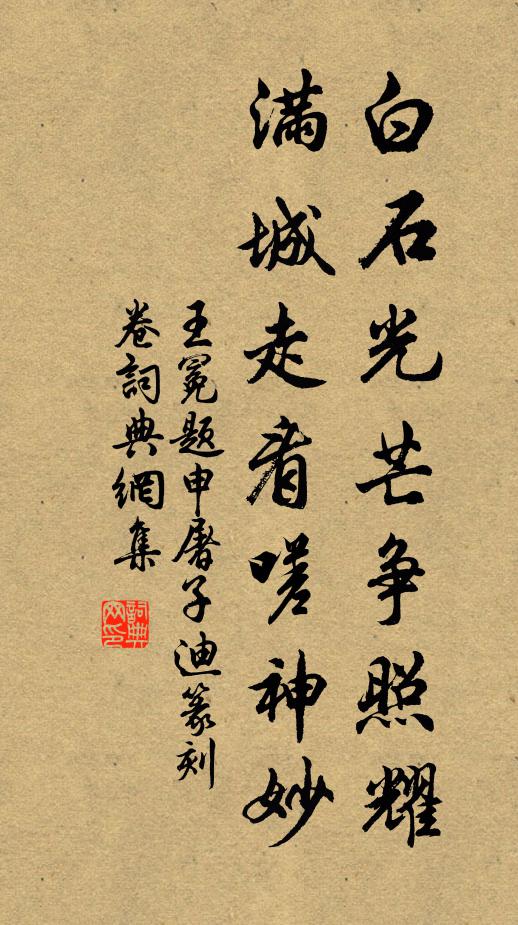 白石光芒争照耀
满城走看嗟神妙
王冕题申屠子迪篆刻
卷詞典網集
詞典网印